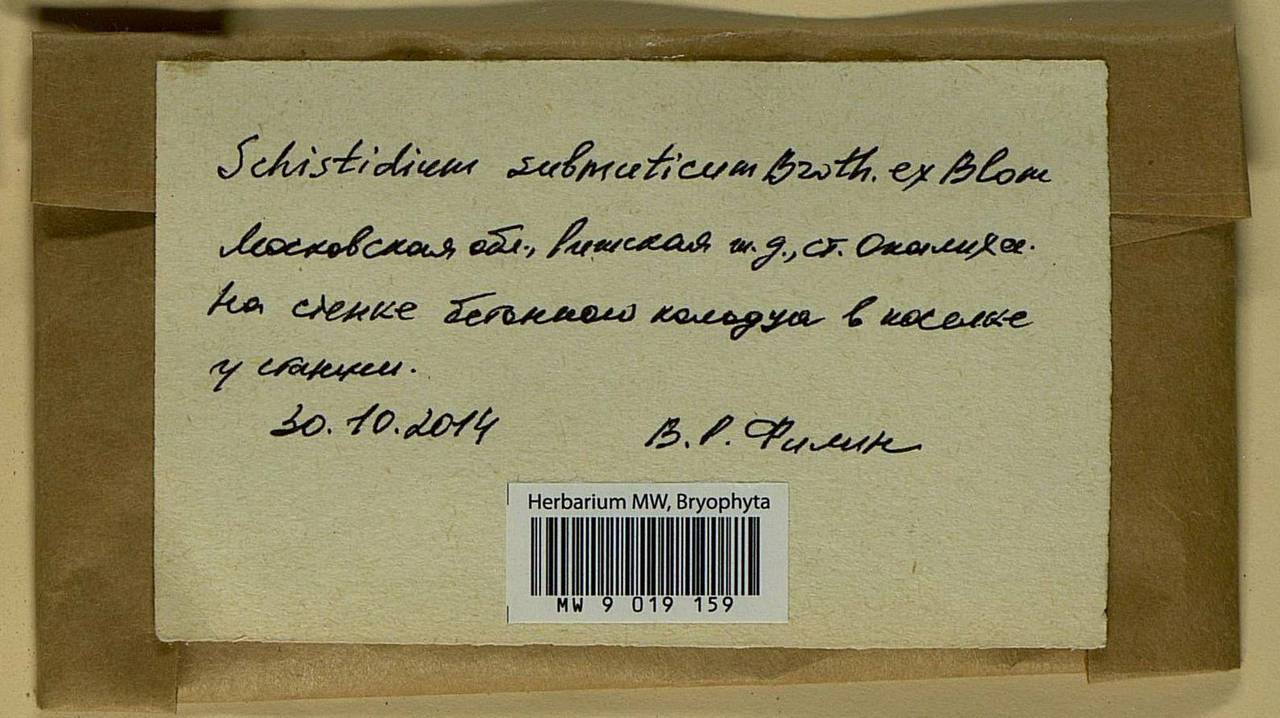 Schistidium submuticum Broth. ex Blom
Московская обл., Рижская ж.д., ст. Опалиха.
На стенке бетонного колодца в поселке
у станции.
30.10.2014 В. Р. Филин
Herbarium MW, Bryophyta
MW 9 019 159